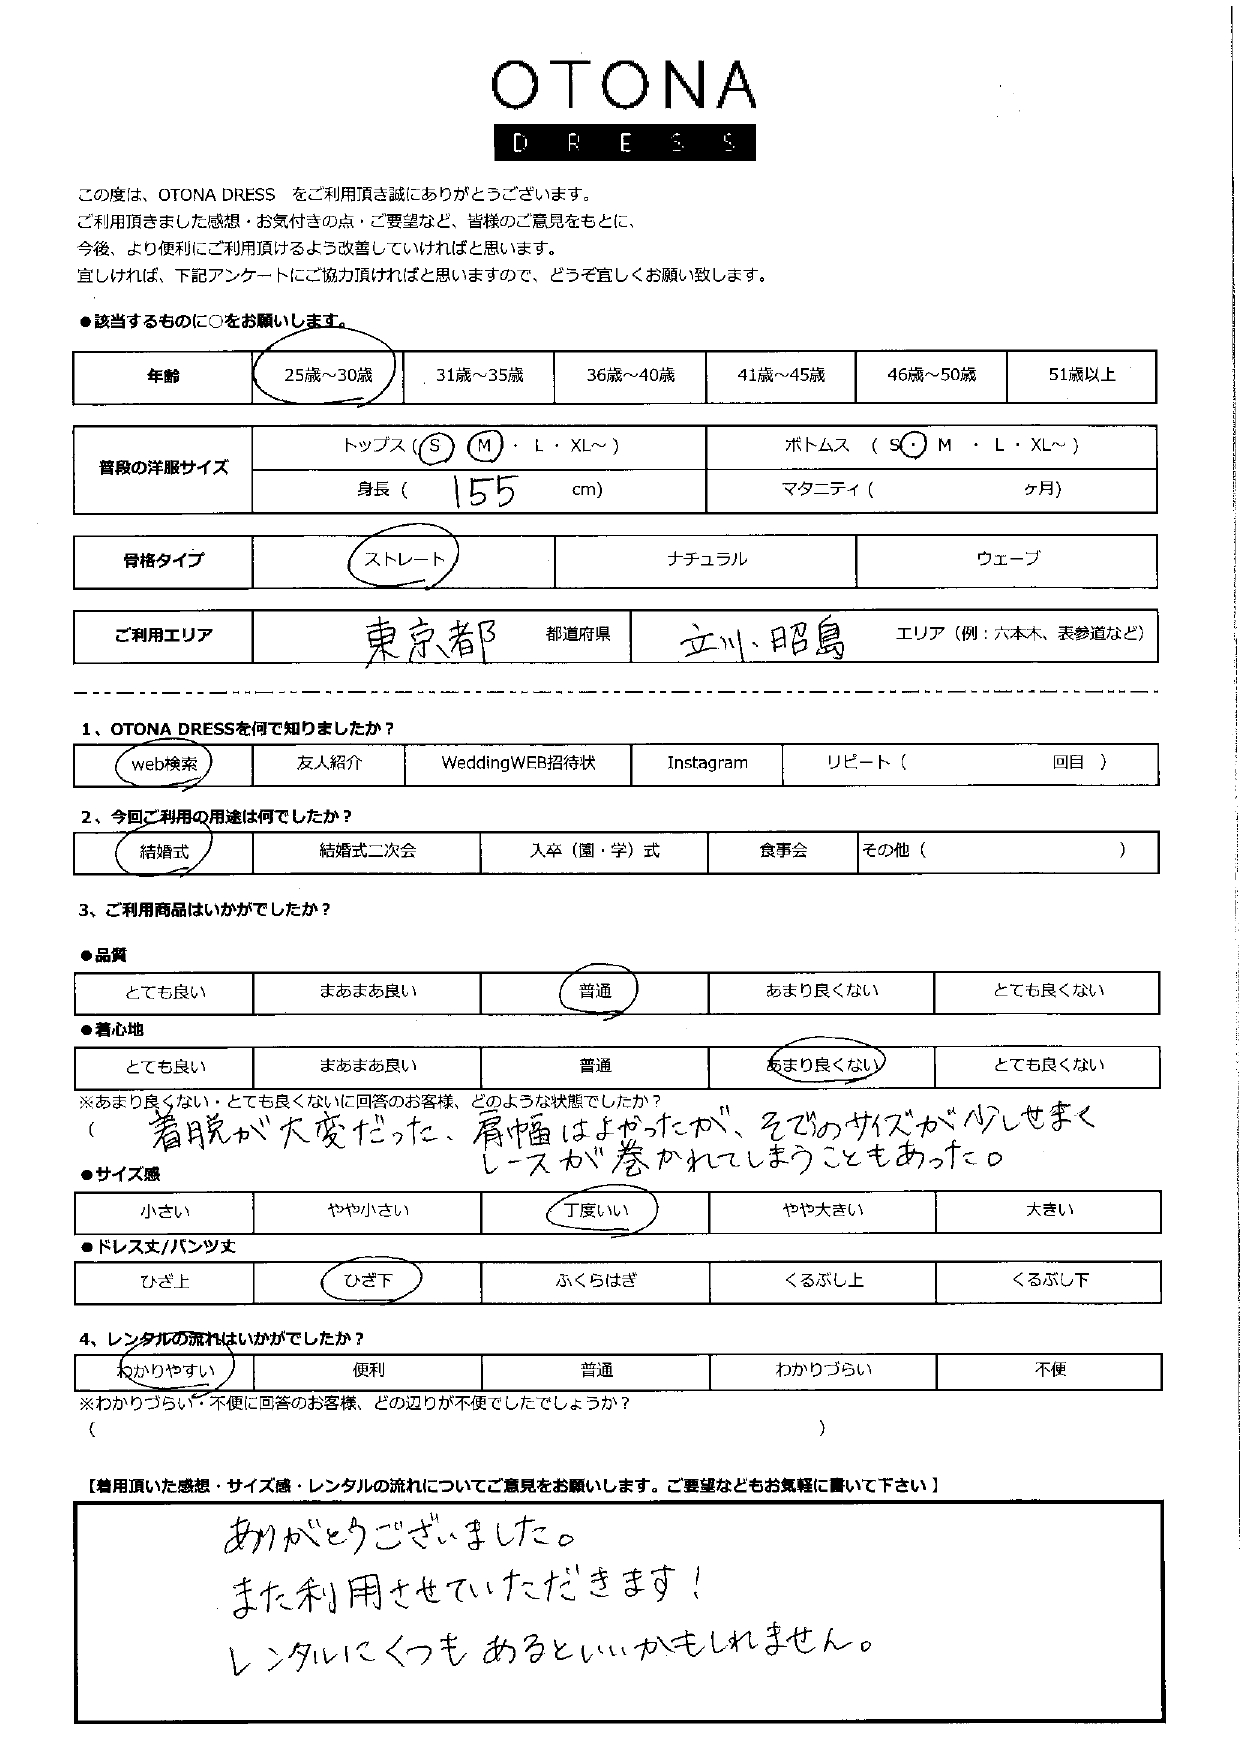 OTONA
DRESS
この度は、OTONA DRESS　をご利用頂き誠にありがとうございます。
ご利用頂きました感想・お気付きの点・ご要望など、皆様のご意見をもとに、
今後、より便利にご利用頂けるよう改善していければと思います。
宜しければ、下記アンケートにご協力頂ければと思いますので、どうぞ宜しくお願い致します。
●該当するものに○をお願いします。
年齢 25歳～30歳 31歳～35歳 36歳～40歳 41歳～45歳 46歳～50歳 51歳以上
普段の洋服サイズ トップス（ S M ・ L ・ XL～ ） ボトムス （ S ・ M ・ L ・ XL～ ）
身長（ 155 cm） マタニティ（ ヶ月）
骨格タイプ ストレート ナチュラル ウェーブ
ご利用エリア 東京都 都道府県 立川、昭島 エリア（例：六本木、表参道など）
1、OTONA DRESSを何で知りましたか？
web検索 友人紹介 WeddingWEB招待状 Instagram リピート（ 回目 ）
2、今回ご利用の用途は何でしたか？
結婚式 結婚式二次会 入卒（園・学）式 食事会 その他（ ）
3、ご利用商品はいかがでしたか？
●品質
とても良い まあまあ良い 普通 あまり良くない とても良くない
●着心地
とても良い まあまあ良い 普通 あまり良くない とても良くない
※あまり良くない・とても良くないに回答のお客様、どのような状態でしたか？
（ 着脱が大変だった、肩幅はよかったが、そでのサイズが少しせまく
レースが巻かれてしまうこともあった。
●サイズ感
小さい やや小さい 丁度いい やや大きい 大きい
●ドレス丈/パンツ丈
ひざ上 ひざ下 ふくらはぎ くるぶし上 くるぶし下
4、レンタルの流れはいかがでしたか？
わかりやすい 便利 普通 わかりづらい 不便
※わかりづらい・不便に回答のお客様、どの辺りが不便でしたでしょうか？
（ ）
【着用頂いた感想・サイズ感・レンタルの流れについてご意見をお願いします。ご要望などもお気軽に書いて下さい】
ありがとうございました。
また利用させていただきます！
レンタルにくつもあるといいかもしれません。